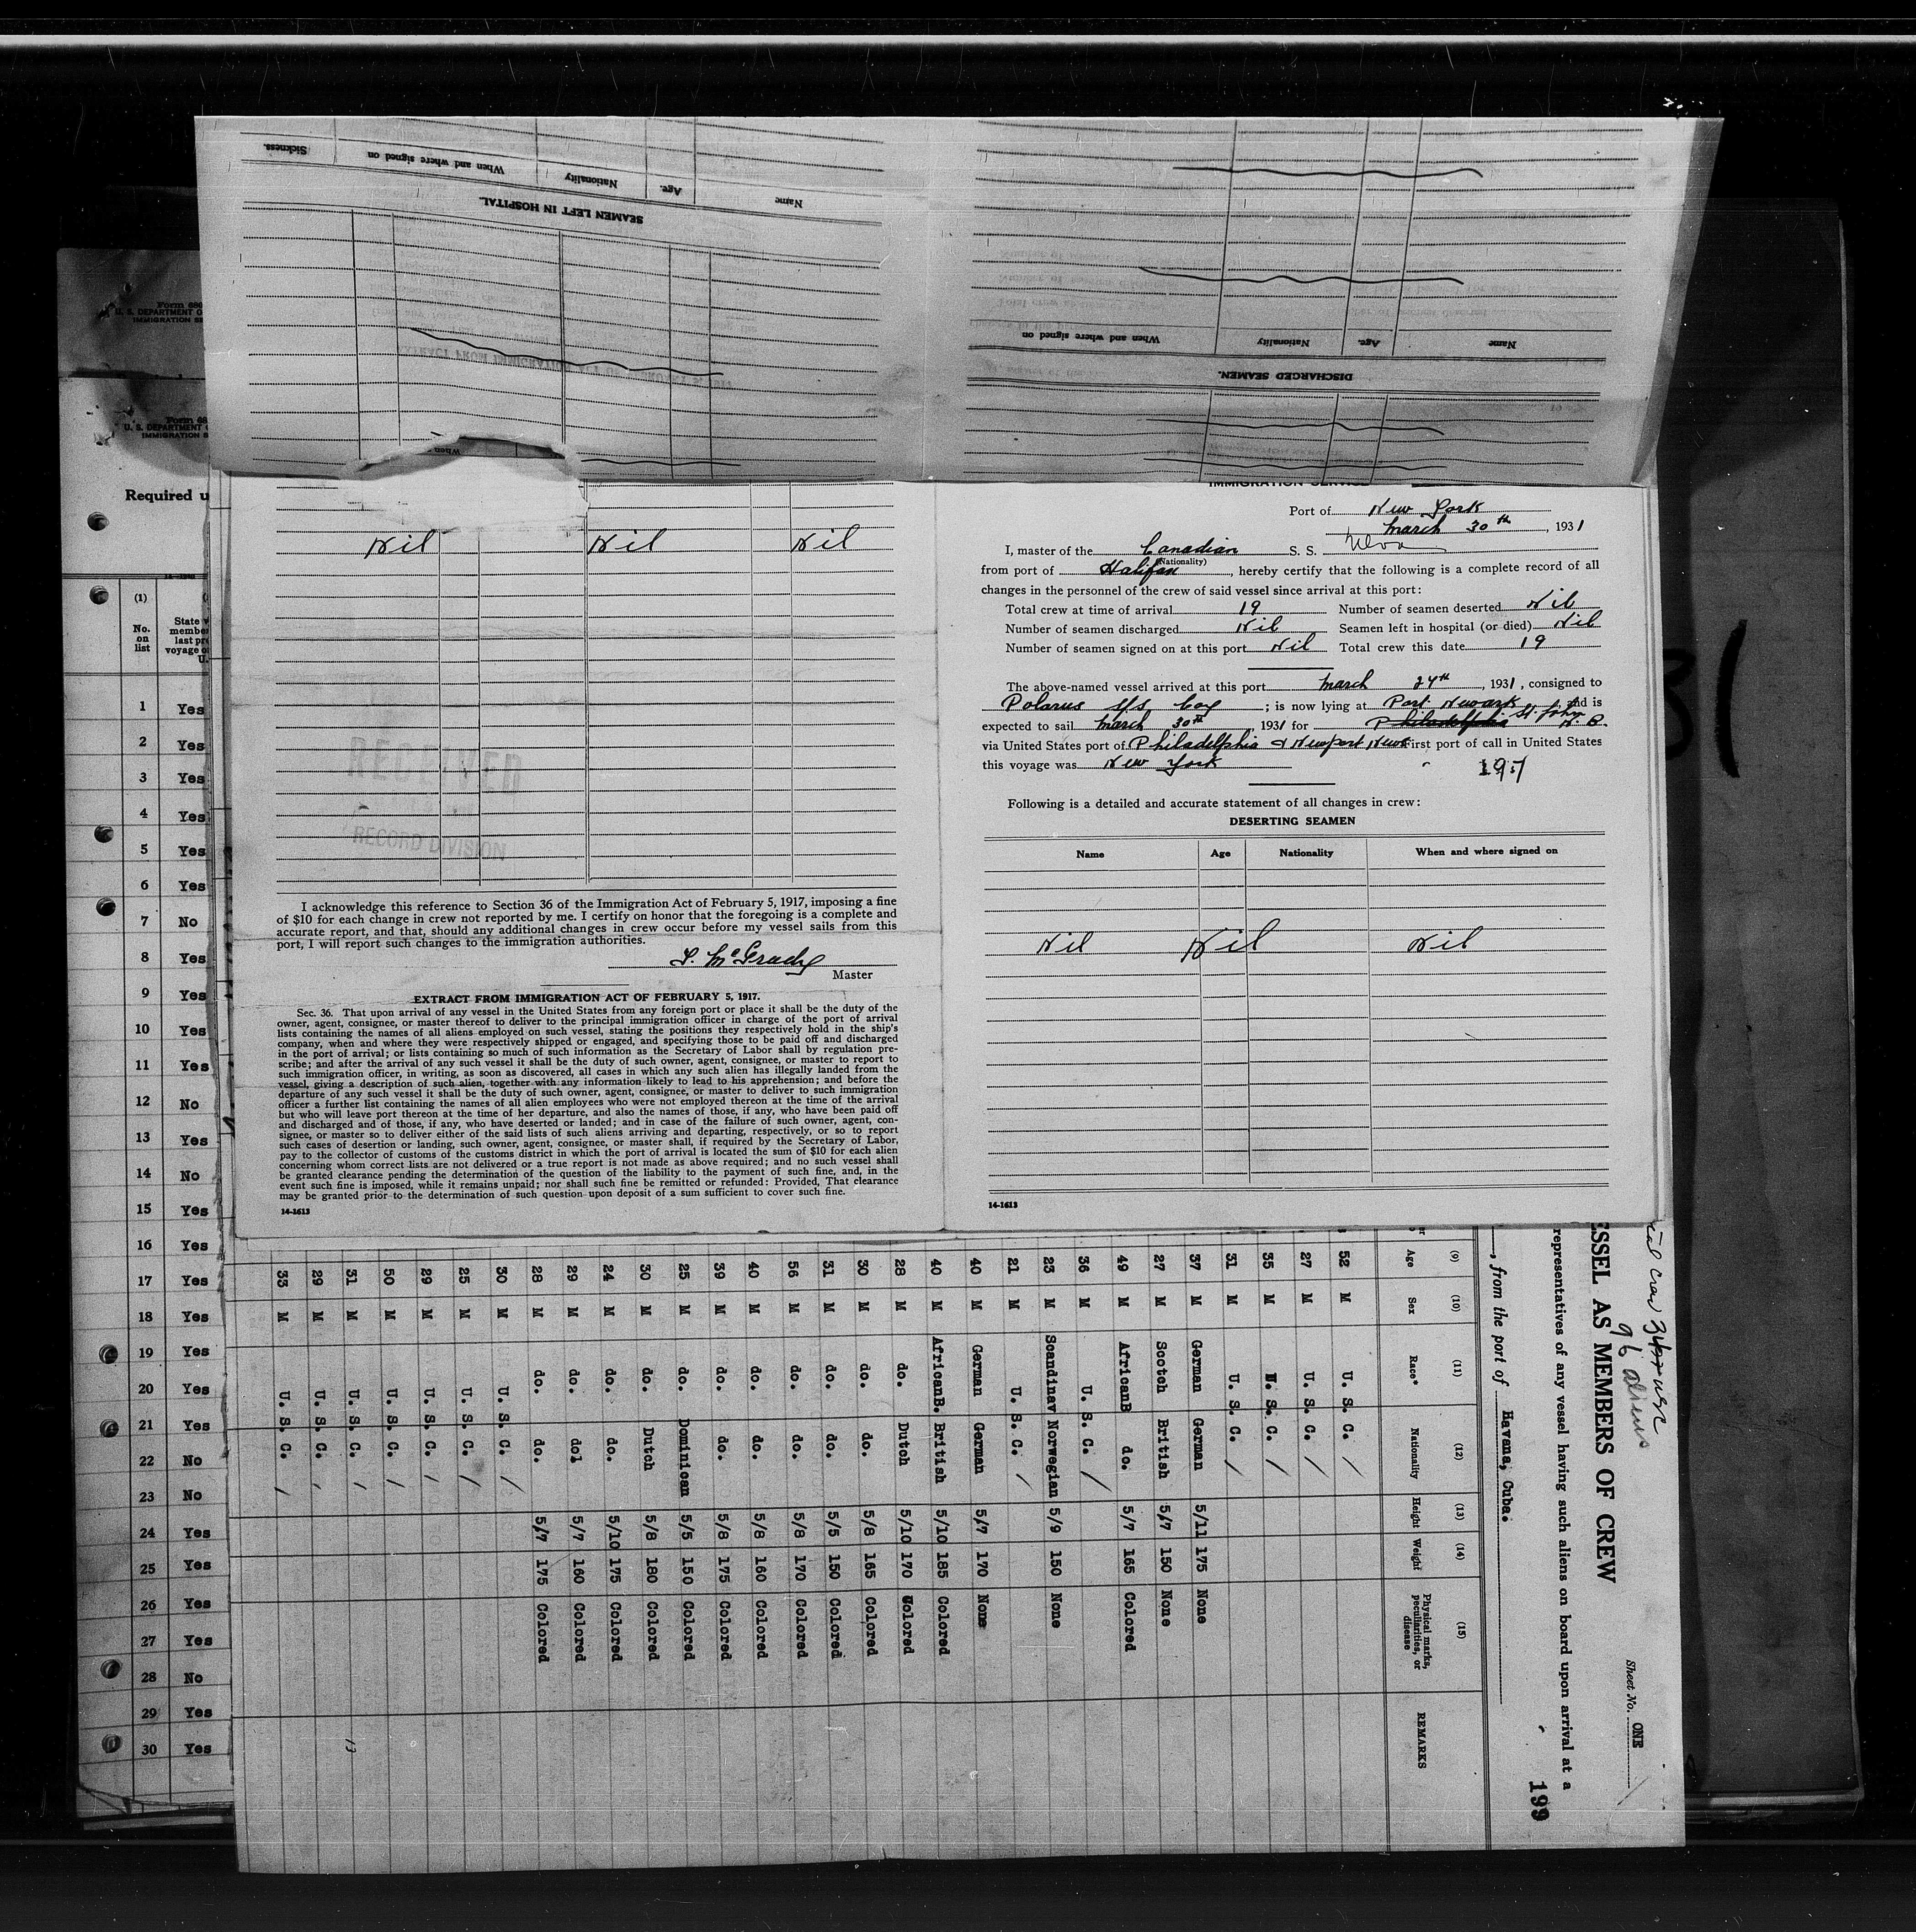 Sickness.
When and where signed on
Nationality
Age.
Name
SEAMEN LEFT IN HOSPITAL.
When and where signed on
Nationality
Age.
Name
DISCHARGED SEAMEN.
Form 680
U. S. DEPARTMENT O
IMMIGRATION SE
Form 68
U. S. DEPARTMENT
IMMIGRATION S
Required u
(1)
No. on list
1 Yes
2 Yes
3 Yes
4 Yes
5 Yes
6 Yes
7 No
8 Yes
9 Yes
10 Yes
11 Yes
12 No
13 Yes
14 No
15 Yes
16 Yes
17 Yes
18 Yes
19 Yes
20 Yes
21 Yes
22 No
23 No
24 Yes
25 Yes
26 Yes
27 Yes
28 No
29 Yes
30 Yes
Nil Nil Nil
RECEIVED
RECORD DIVISION
I acknowledge this reference to Section 36 of the Immigration Act of February 5, 1917, imposing a fine
of $10 for each change in crew not reported by me. I certify on honor that the foregoing is a complete and
accurate report, and that, should any additional changes in crew occur before my vessel sails from this
port, I will report such changes to the immigration authorities.
Master
EXTRACT FROM IMMIGRATION ACT OF FEBRUARY 5, 1917.
Sec. 36. That upon arrival of any vessel in the United States from any foreign port or place it shall be the duty of the
owner, agent, consignee, or master thereof to deliver to the principal immigration officer in charge of the port of arrival
lists containing the names of all aliens employed on such vessel, stating the positions they respectively hold in the ship's
company, when and where they were respectively shipped or engaged, and specifying those to be paid off and discharged
in the port of arrival; or lists containing so much of such information as the Secretary of Labor shall by regulation pre-
scribe; and after the arrival of any such vessel it shall be the duty of such owner, agent, consignee, or master to report to
such immigration officer, in writing, as soon as discovered, all cases in which any such alien has illegally landed from the
vessel, giving a description of such alien, together with any information likely to lead to his apprehension; and before the
departure of any such vessel it shall be the duty of such owner, agent, consignee, or master to deliver to such immigration
officer a further list containing the names of all alien employees who were not employed thereon at the time of the arrival
but who will leave port thereon at the time of her departure, and also the names of those, if any, who have been paid off
and discharged and of those, if any, who have deserted or landed; and in case of the failure of such owner, agent, con-
signee, or master so to deliver either of the said lists of such aliens arriving and departing, respectively, or so to report
such cases of desertion or landing, such owner, agent, consignee, or master shall, if required by the Secretary of Labor,
pay to the collector of customs of the customs district in which the port of arrival is located the sum of $10 for each alien
concerning whom correct lists are not delivered or a true report is not made as above required; and no such vessel shall
be granted clearance pending the determination of the question of the liability to the payment of such fine, and, in the
event such fine is imposed, while it remains unpaid; nor shall such fine be remitted or refunded: Provided, That clearance
may be granted prior to the determination of such question upon deposit of a sum sufficient to cover such fine.
14-1613
IMMIGRATION SERVICE
Port of New York
March 30th, 1931
I, master of the Canadian S. S.
(Nationality)
from port of Halifax, hereby certify that the following is a complete record of all
changes in the personnel of the crew of said vessel since arrival at this port:
Total crew at time of arrival 19 Number of seamen deserted Nil
Number of seamen discharged Nil Seamen left in hospital (or died) Nil
Number of seamen signed on at this port Nil Total crew this date 19
The above-named vessel arrived at this port March 24th, 1931, consigned to
Polarus S/S Coy; is now lying at Port Newark and is
expected to sail March 30th, 1931 for Philadelphia St. John N. B.
via United States port of Philadelphia & Newport News First port of call in United States
this voyage was New York
197
Following is a detailed and accurate statement of all changes in crew:
DESERTING SEAMEN
Name Age Nationality When and where signed on
Nil Nil Nil
14-1613
96 aliens
Sheet No. ONE
ESSEL AS MEMBERS OF CREW
representatives of any vessel having such aliens on board upon arrival at a
199
, from the port of Havana, Cuba.
(9) (10) (11) (12) (13) (14) (15)
Age Sex Race* Nationality Height Weight Physical marks, peculiarities, or disease REMARKS
52 M U. S. C.
27 M U. S. C.
35 M U. S. C.
31 M U. S. C.
37 M German German 5/11 175 None
27 M Scotch British 5/7 150 None
49 M AfricanB do. 5/7 165 Colored
36 M U. S. C.
23 M Scandinav Norwegian 5/9 150 None
21 M U. S. C.
40 M German German 5/7 170 None
40 M AfricanB. British 5/10 185 Colored
28 M do. Dutch 5/10 170 Colored
30 M do. do. 5/8 165 Colored
31 M do. do. 5/5 150 Colored
56 M do. do. 5/8 170 Colored
40 M do. do. 5/8 160 Colored
39 M do. do. 5/8 175 Colored
25 M do. Dominican 5/5 150 Colored
30 M do. Dutch 5/8 180 Colored
24 M do. do. 5/10 175 Colored
29 M do. dol 5/7 160 Colored
28 M do. do. 5/7 175 Colored
30 M U. S. C.
25 M U. S. C.
29 M U. S. C.
50 M U. S. C.
31 M U. S. C.
29 M U. S. C.
33 M U. S. C.
13